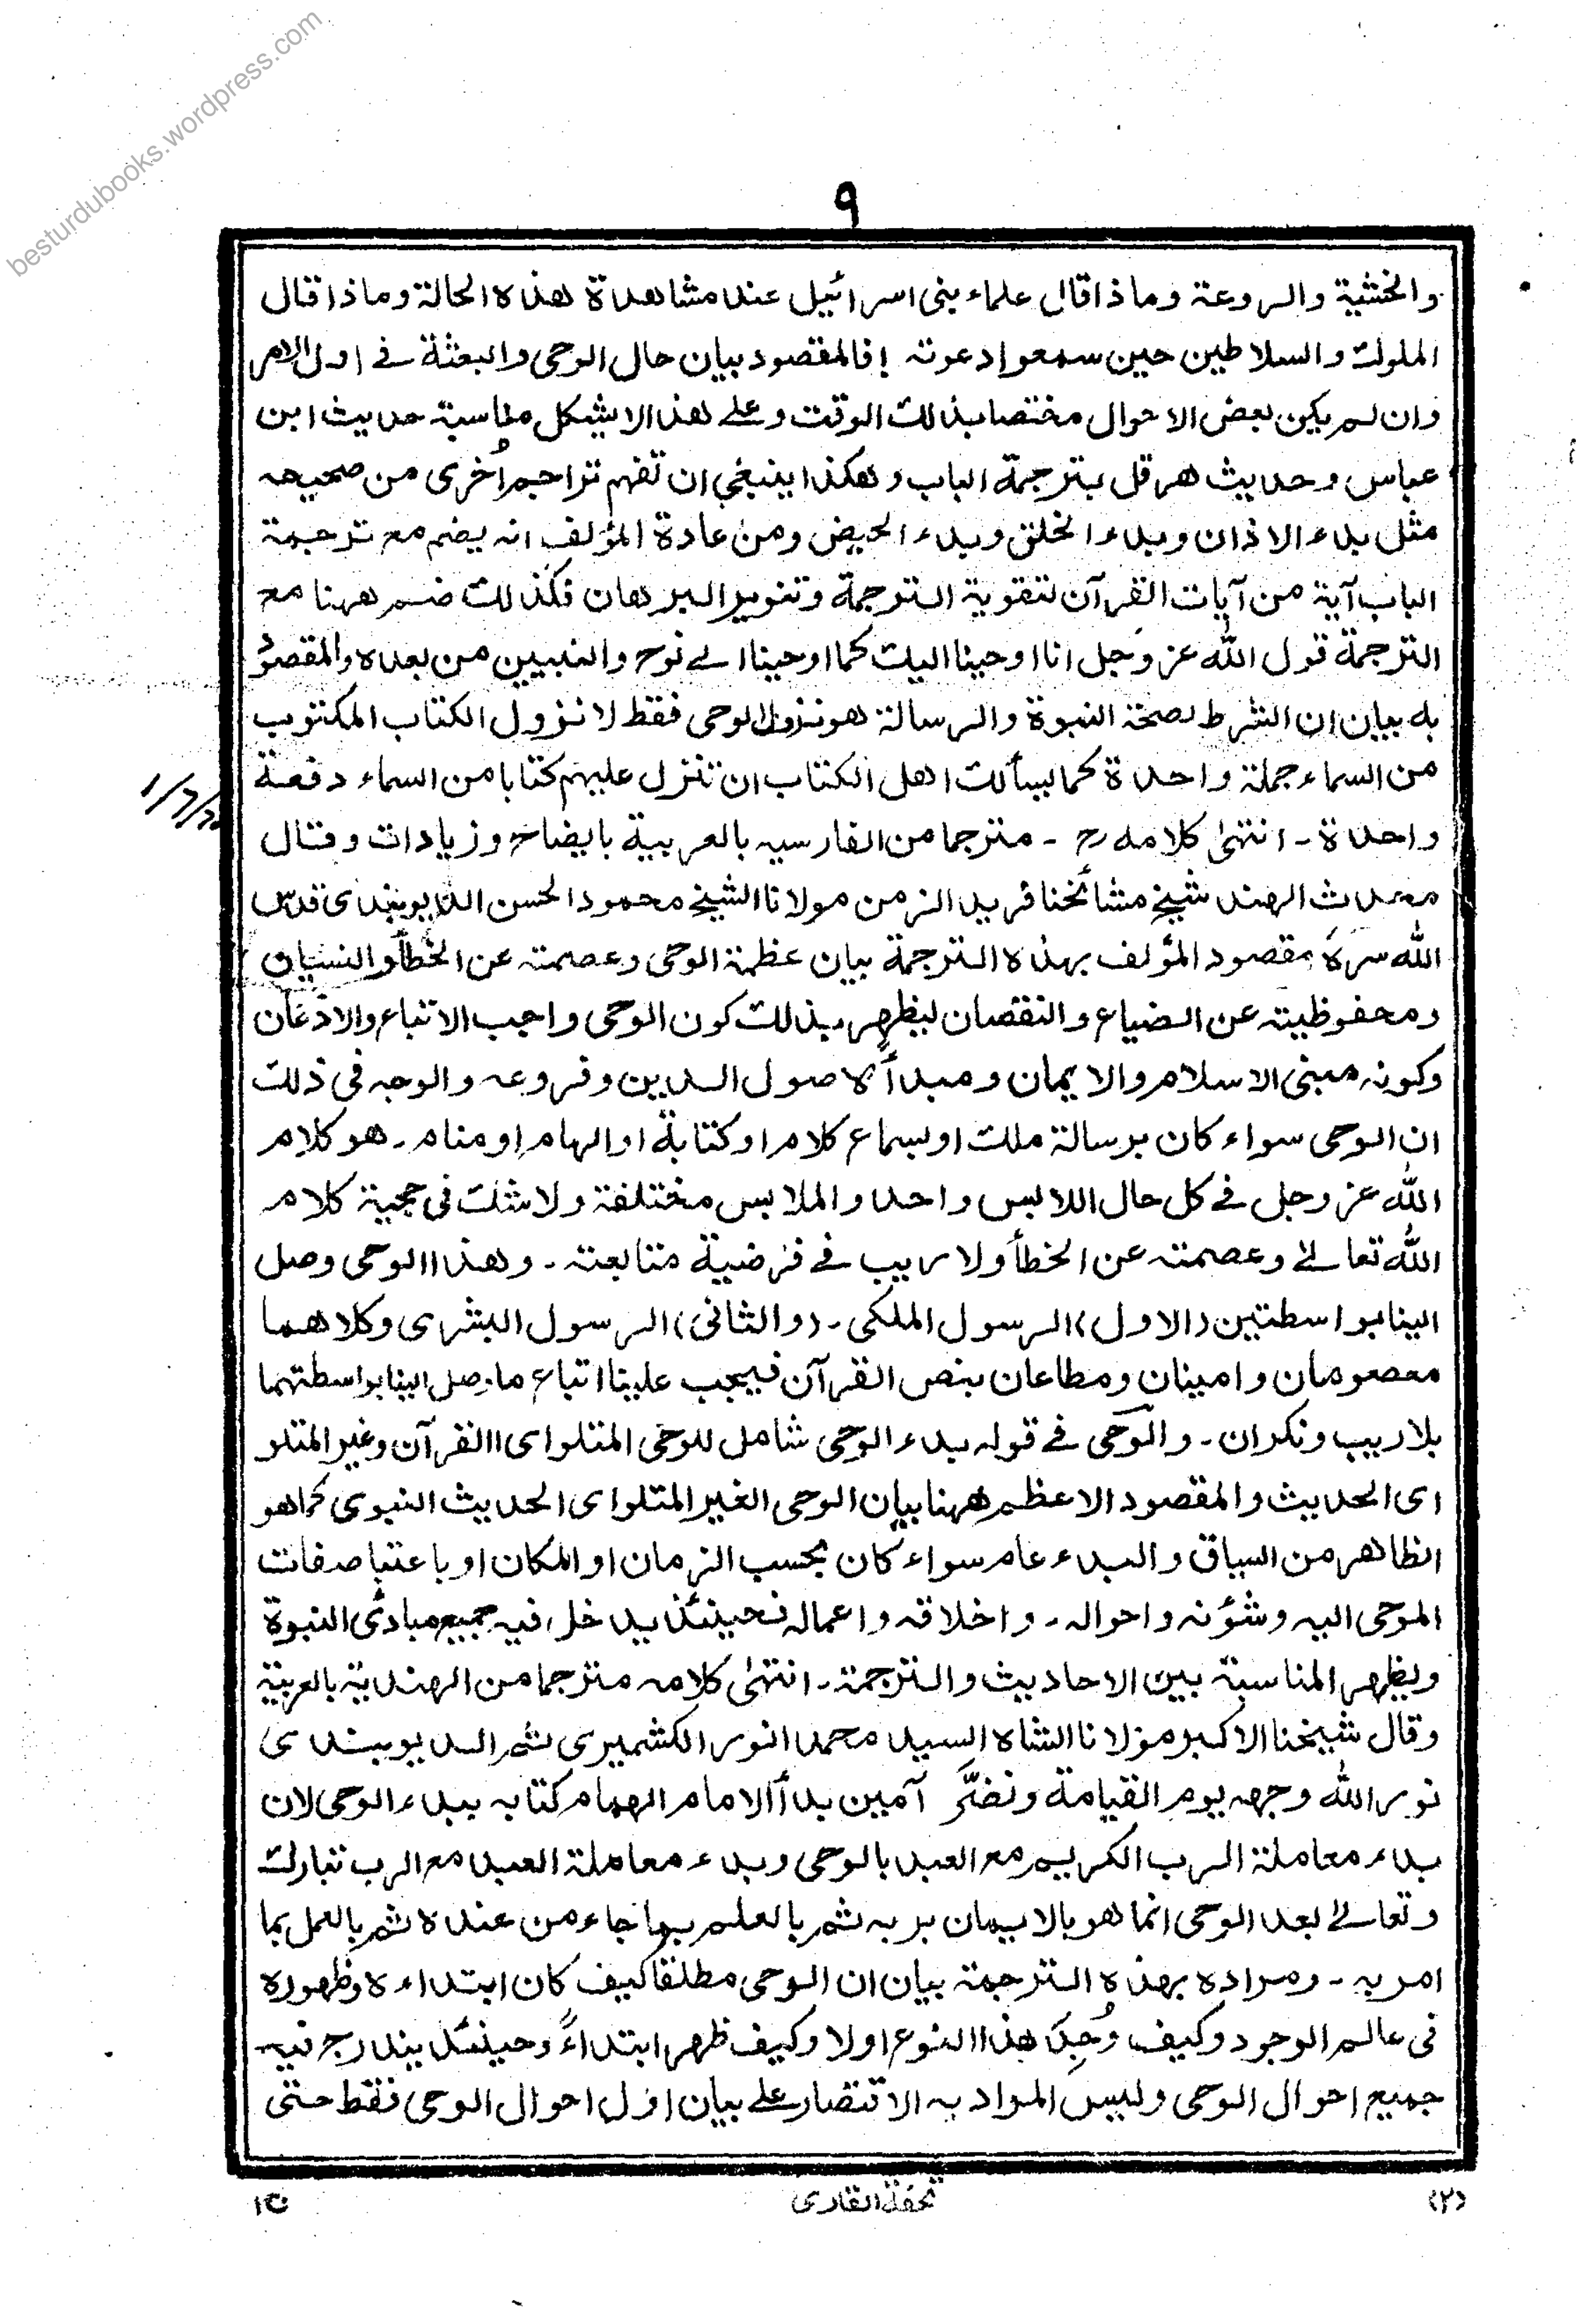 besturdubooks.wordpress.com
٩
والخشية والروعة وماذا قال علماء بنى اسرائيل عند مشاهدة هذه الحالة وماذا قال
الملوك والسلاطين حين سمعوا دعوته فالمقصود بيان حال الوحى والبعثة فے اول الامر
وان لم يكن بعض الاحوال مختصا بذلك الوقت وعلے هذا لا يشكل مناسبة حديث ابن
عباس وحديث هرقل بترجمة الباب وهكذا ينبغى ان تفهم تراجم اُخرى من صحيحه
مثل بدء الاذان وبدء الخلق وبدء الحيض ومن عادة المؤلف انه يضم مع ترجمة
الباب آية من آيات القرآن لتقوية الترجمة وتنوير البرهان فكذلك ضم ههنا مع
الترجمة قول الله عز وجل انا اوحينا اليك كما اوحينا الے نوح والنبيين من بعده والمقصود
به بيان ان الشرط لصحة النبوة والرسالة هو نزول الوحى فقط لا نزول الكتاب المكتوب
من السماء جملة واحدة كما يسألك اهل الكتاب ان تنزل عليهم كتابا من السماء دفعة
واحدة - انتهىٰ كلامه رح - مترجما من الفارسيه بالعربية بايضاح وزيادات وقال
محدث الهند شيخ مشائخنا فريد الزمن مولانا الشيخ محمود الحسن الديوبندى قدس
الله سرهٗ مقصود المؤلف بهذه الترجمة بيان عظمة الوحى وعصمته عن الخطأ والنسيان
ومحفوظيته عن الضياع والنقصان ليظهر بذلك كون الوحى واجب الاتباع والاذعان
وكونه مبنى الاسلام والايمان ومبدأً لاصول الدين وفروعه والوجه فى ذلك
ان الوحى سواء كان برسالة ملك او بسماع كلام او كتابة او الهام او منام - هو كلام
الله عز وجل فے كل حال اللابس واحد والملابس مختلفة ولا شك فى حجية كلام
الله تعالےٰ وعصمته عن الخطأ ولا ريب فے فرضية متابعته - وهذا الوحى وصل
الينا بواسطتين (الاول) الرسول الملكى - (والثانى) الرسول البشرى وكلاهما
معصومان وامينان ومطاعان بنص القرآن فيجب علينا اتباع ما وصل الينا بواسطتهما
بلا ريب ونكران - والوحى فے قوله بدء الوحى شامل للوحى المتلو اى القرآن وغير المتلو
اى الحديث والمقصود الاعظم ههنا بيان الوحى الغير المتلو اى الحديث النبوى كما هو
الظاهر من السياق والبدء عام سواء كان بحسب الزمان او المكان او باعتبا صفات
الموحى اليه وشؤنه واحواله - واخلاقه واعماله فحينئذ يدخل فيه جميع مبادئى النبوة
ويظهر المناسبة بين الاحاديث والترجمة - انتهىٰ كلامه مترجما من الهندية بالعربية
وقال شيخنا الاكبر مولانا الشاه السيد محمد انور الكشميرى ثم الديوبندى
نور الله وجهه يوم القيامة ونضّر آمين بدأ الامام الهمام كتابه ببدء الوحى لان
بدء معاملة الرب الكريم مع العبد بالوحى وبدء معاملة العبد مع الرب تبارك
وتعالےٰ بعد الوحى انما هو بالايمان بربه ثم بالعلم بما جاء من عنده ثم بالعمل بما
امر به - ومراده بهذه الترجمة بيان ان الوحى مطلقا كيف كان ابتداءه وظهوره
فى عالم الوجود وكيف وُجِدَ هذا النوع اولا وكيف ظهر ابتداءً وحينئذ يندرج فيه
جميع احوال الوحى وليس المراد به الاقتصار علے بيان اول احوال الوحى فقط حتى
(٢)
تحفة القارى
ج١